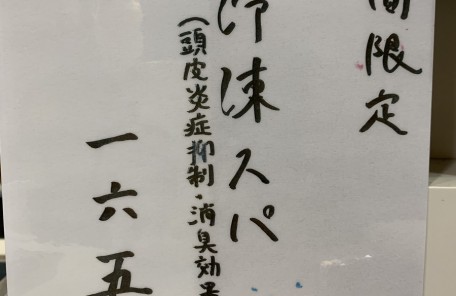 間限定
冷凍スパ
(頭皮炎症抑制・消臭効果
一六五